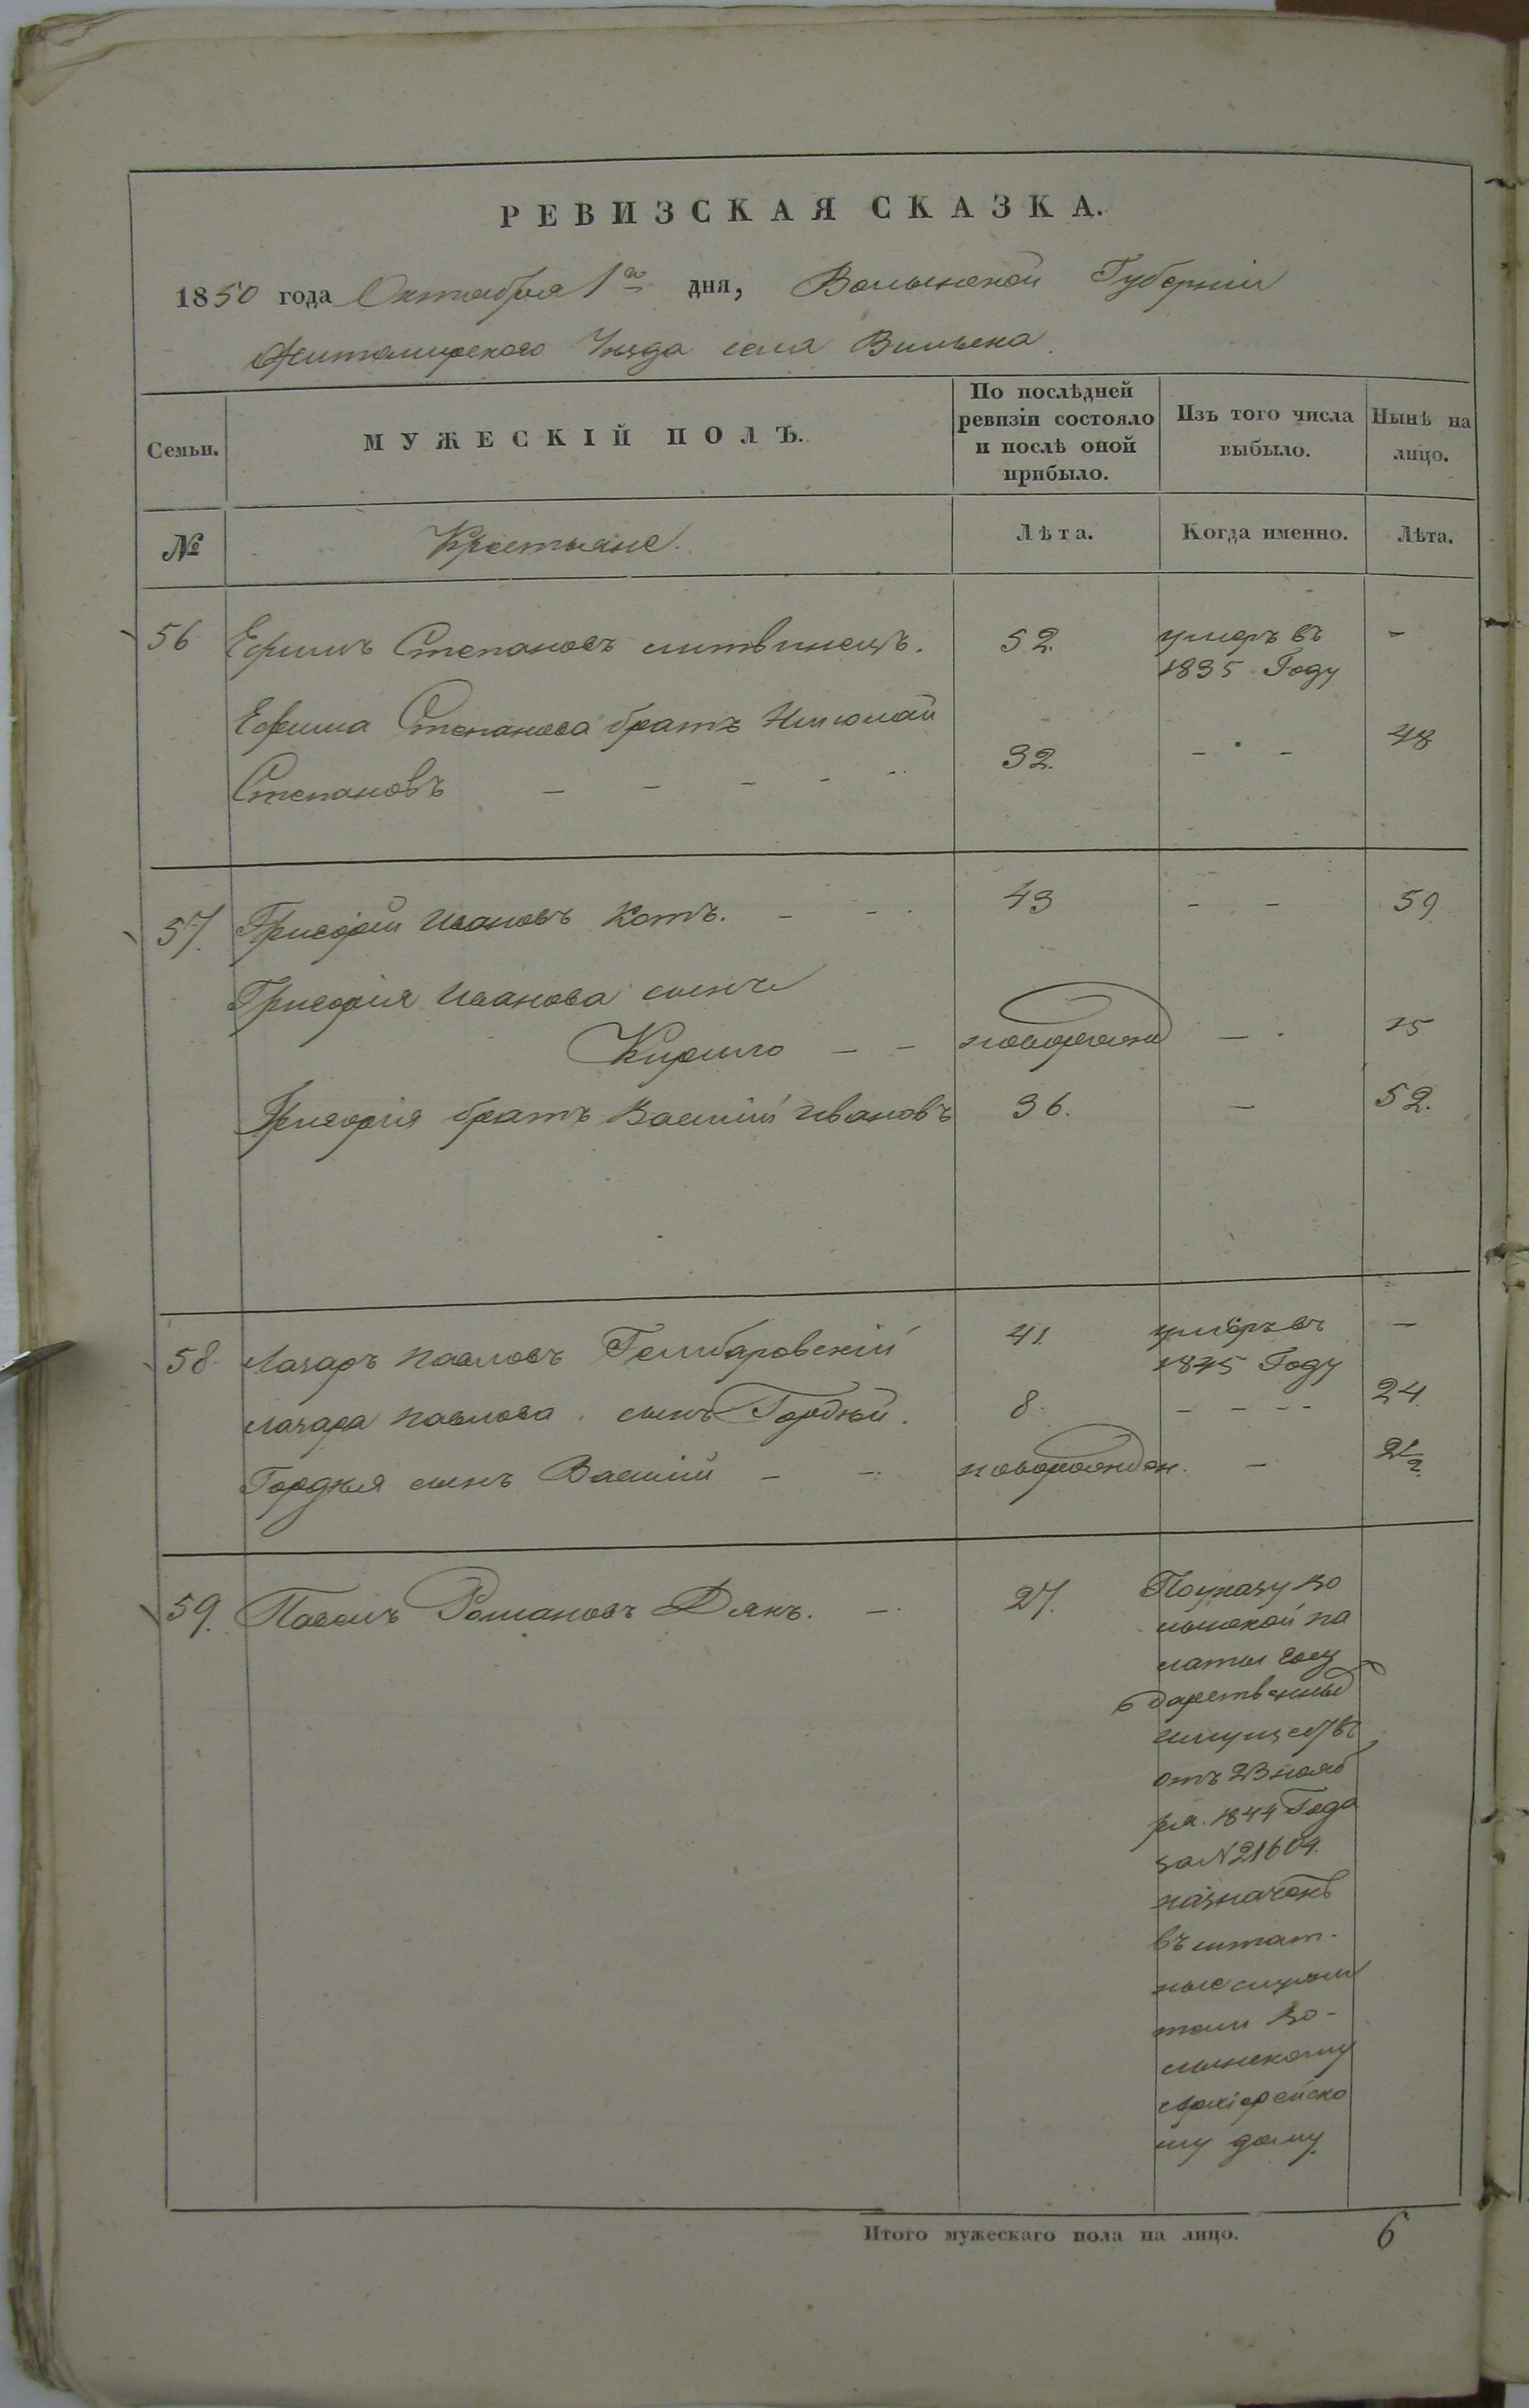 РЕВИЗСКАЯ СКАЗКА.
1850 года Октября 1го дня, Волынской Губерніи
Житомирского Уѣзда села Вильска
Семьи. МУЖЕСКІЙ ПОЛЪ. По послѣдней ревизіи состояло и послѣ оной прибыло. Изъ того числа выбыло. Нынѣ на лицо.
№ Крестьяне. Лѣта. Когда именно. Лѣта.
56 Ефимъ Степановъ литвинецъ. 52. умеръ въ -
1835 Году
Ефима Степанова братъ Николай
Степановъ - - - - - 32. - - 48
57. Григорій Ивановъ Котъ. - - 43 - - 59
Григорія Иванова сынъ
Кирило - - новорожд - 15
Григорія братъ Василій Ивановъ 36. - 52.
58. Лазаръ Павловъ 41. умеръ въ -
1845 Году
Лазара Павлова сынъ Гордѣй. 8. - - - - 24.
Гордѣя сынъ Василій - - новорожден. - 2 1/2
59. Павелъ Романовъ Дякъ. - 27. По указу во
лынской па
латы госу
дарственныхъ
имуществъ
отъ 23 нояб
ря. 1844 Года
за N 21604.
назначенъ
въ штат-
ные служи
тели Во-
лынскому
Архіерейско
му дому.
Итого мужескаго пола на лицо. 6